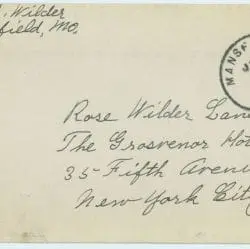 . Wilder
field, Mo.
MANSF
Rose Wilder Lane
The Grosvenor Hot
35 Fifth Avenu
New York City